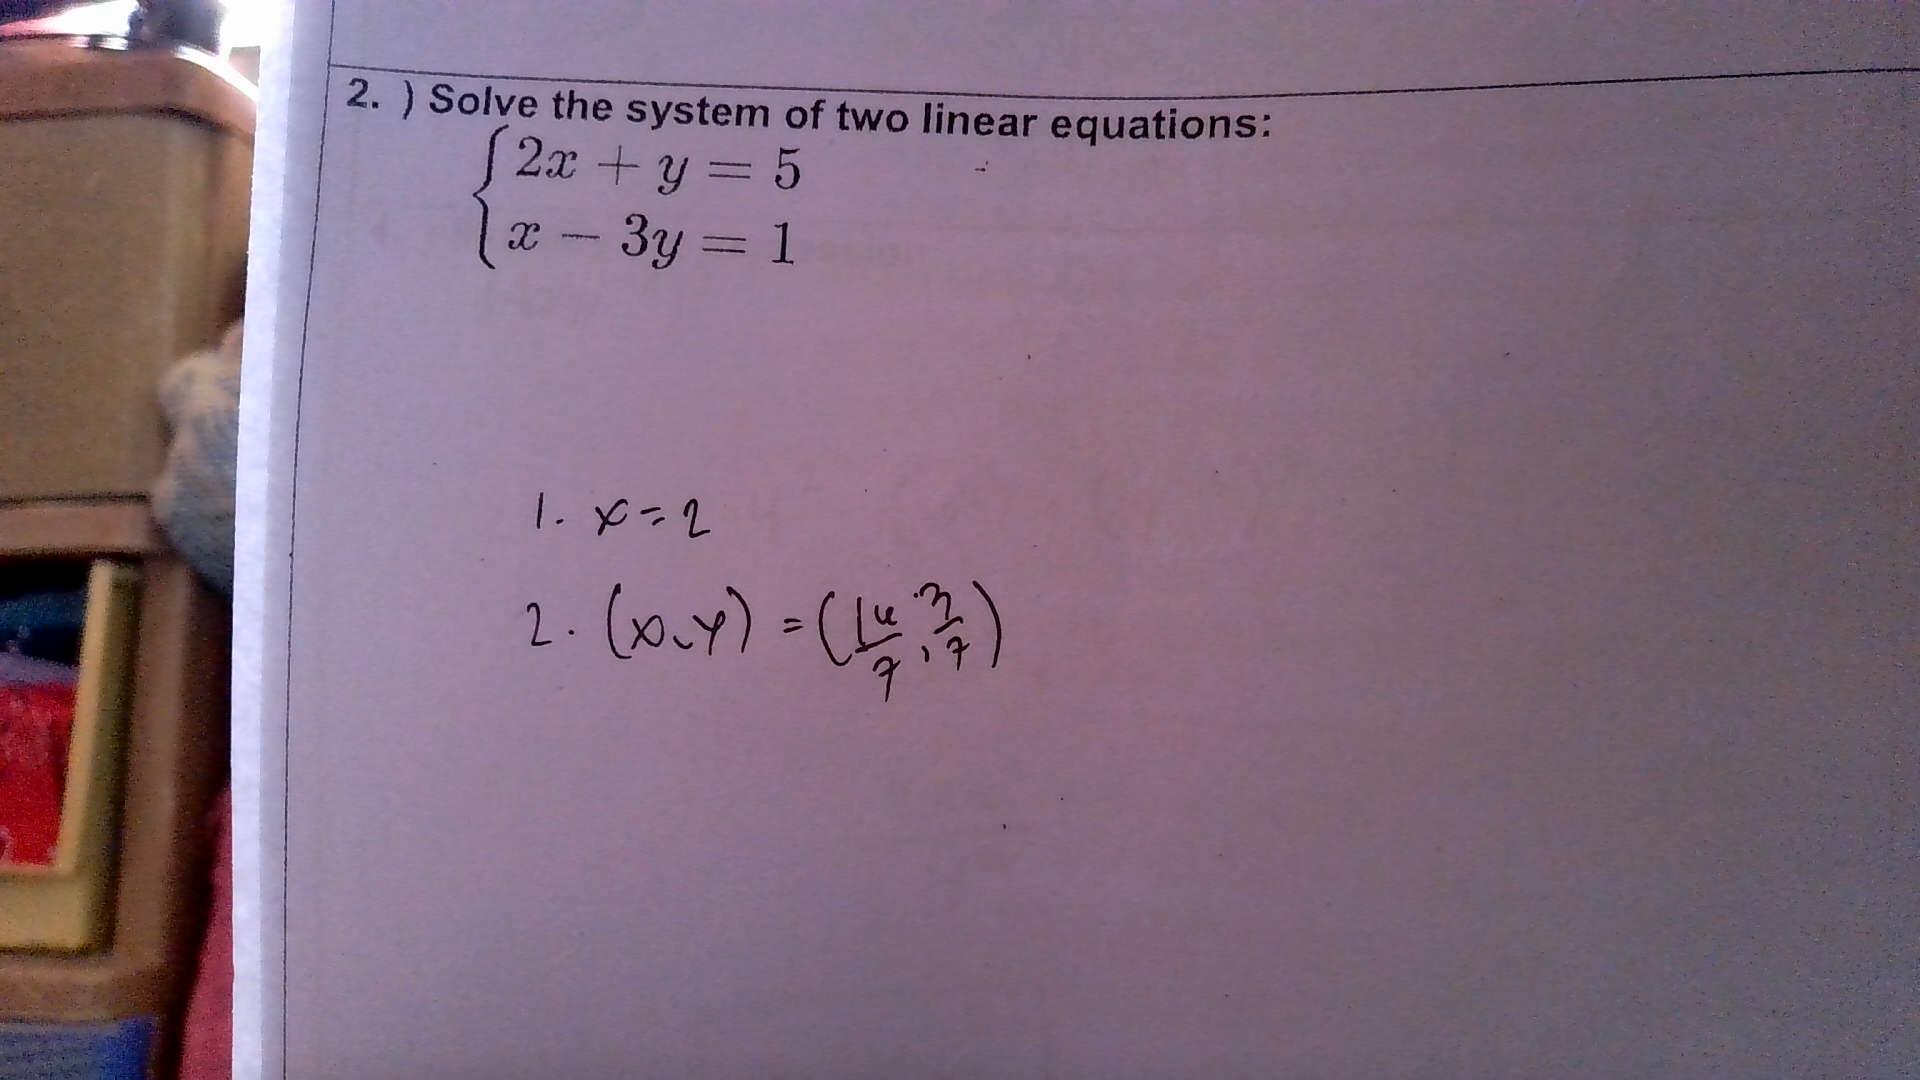 2. ) Solve the system of two linear equations:
2x + y = 5
x − 3y = 1
1. x = 2
2. (x, y) = (16/7, 3/7)